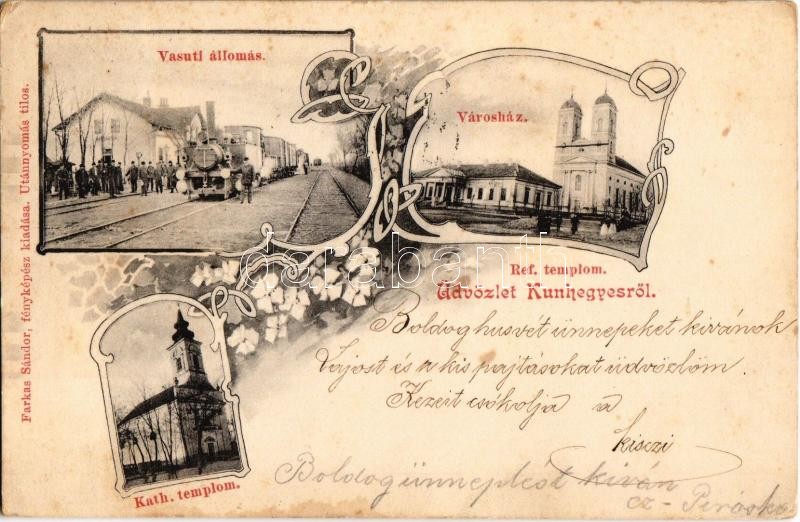 Vasuti állomás.
Városház.
Ref. templom.
Üdvözlet Kunhegyesről.
Farkas Sándor, fényképész kiadása. Utánnyomás tilos.
Kath. templom.
Boldog husvét ünnepeket kivánok
Lajost és a kis pajtásokat üdvözlöm
Kezeit csókolja a
kisczi
Boldog ünneplést kiván
Piroska
darabanth